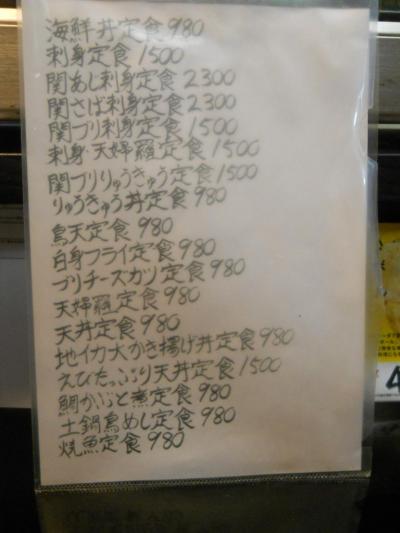 海鮮丼定食980
刺身定食1500
関あじ刺身定食2300
関さば刺身定食2300
関ブリ刺身定食1500
刺身・天婦羅定食1500
関ブリりゅうきゅう定食1500
りゅうきゅう丼定食980
鳥天定食980
白身フライ定食980
ブリチーズカツ定食980
天婦羅定食980
天丼定食980
地イカ大かき揚げ丼定食980
えびたっぷり天丼定食1500
鯛かぶと蒸定食980
土鍋鳥めし定食980
焼魚定食980